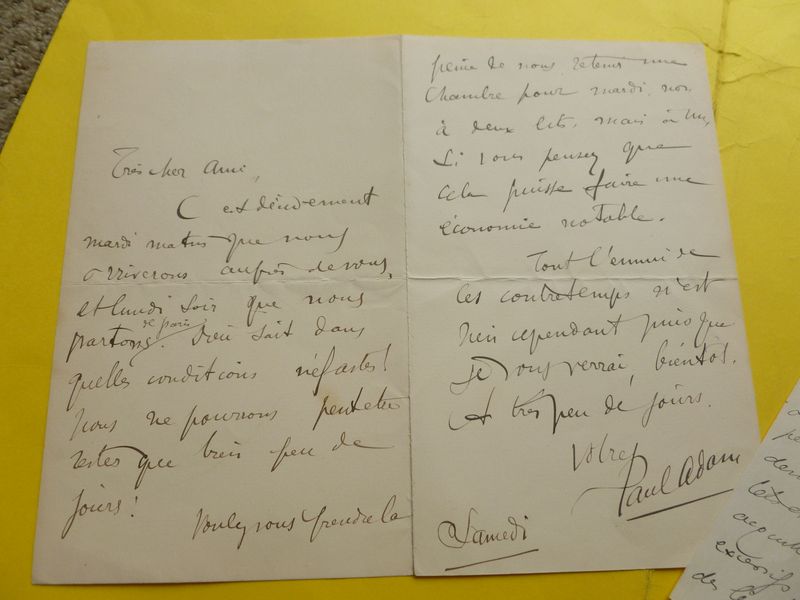 Très cher Ami,
C'est décidément
mardi matin que nous
arriverons auprès de vous,
et lundi soir que nous
partons de Paris. Dieu sait dans
quelles conditions néfastes!
Nous ne pourrons peutetre
rester que bien peu de
jours!
Voulez vous prendre la
peine de nous retenir une
chambre pour mardi, non
à deux lits, mais à un,
si vous pensez que
cela puisse faire une
économie notable.
Tout l'ennui de
ces contretemps n'est
rien cependant puisque
je vous verrai, bientôt.
A très peu de jours.
Votre
Paul Adam
Samedi